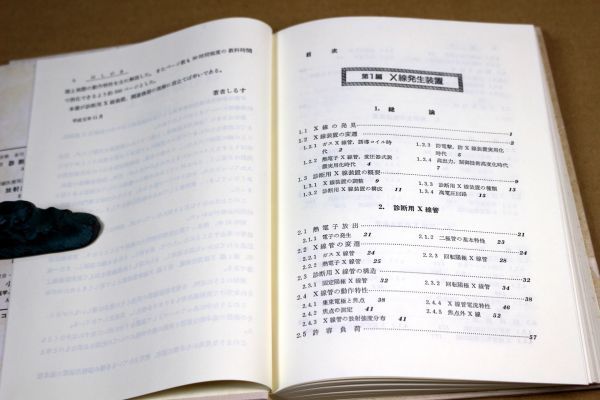 は し が き
著者しるす
目 次
第1編 X線発生装置
1. 総 論
1.1 X 線 の 発 見 1
1.2 X線装置の変遷 2
1.2.1 ガス X 線管，誘導コイル時代 2
1.2.2 熱電子 X 線管，変圧器式装置実用化時代 4
1.2.3 防電撃，防 X 線装置実用化時代 6
1.2.4 高出力，制御技術高度化時代 7
1.3 診断用 X 線装置の概要 9
1.3.1 X 線装置の調整 9
1.3.2 診断用 X 線装置の構成 11
1.3.3 診断用 X 線装置の種類 13
1.3.4 高電圧回路 15
2. 診断用 X 線管
2.1 熱 電 子 放 出 21
2.1.1 電子の発生 21
2.1.2 二極管の基本特性 23
2.2 X 線 管 の 変 遷 24
2.2.1 ガス X 線管 24
2.2.2 熱電子 X 線管 25
2.2.3 回転陽極 X 線管 28
2.3 診断用 X 線管の構造 32
2.3.1 固定陽極 X 線管 32
2.3.2 回転陽極 X 線管 34
2.4 X 線管の動作特性 38
2.4.1 集束電極と焦点 38
2.4.2 焦点の測定 41
2.4.3 X 線管の放射強度分布 41
2.4.4 X 線管電流特性 46
2.4.5 焦点外 X 線 52
2.5 許 容 負 荷 57